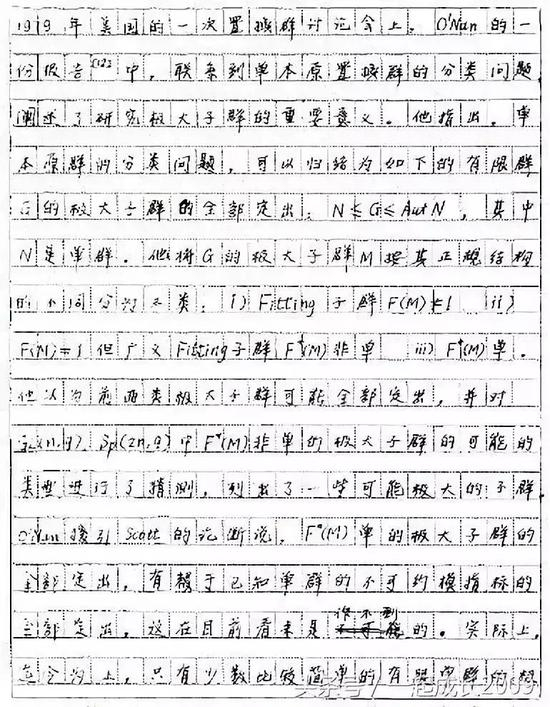 1979年美国的一次置换群讨论会上，O'Nan的一
份报告[12]中，联系到单本原置换群的分类问题，
阐述了研究极大子群的重要意义。他指出，单
本原群的分类问题，可以归结为如下的有限群
G的极大子群的全部定出：N≤G≤AutN，其中
N是单群。他将G的极大子群M按其正规结构
的不同分为三类：i) Fitting子群F(M)≠1 ii)
F(M)=1但广义Fitting子群F*(M)非单 iii) F*(M)单。
他认为前两类极大子群可能全部定出，并对
(n,q)、Sp(2n,q)中F*(M)非单的极大子群的可能的
类型进行了猜测，列出了一些可能极大的子群。
O'Nan援引Scott的论断说，F*(M)单的极大子群的
全部定出，有赖于已知单群的不可约模指标的
全部定出，这在目前看来是作不到的。实际上，
迄今为止，只有少数比较简单的有限单群的极
头条号/一起成长2009